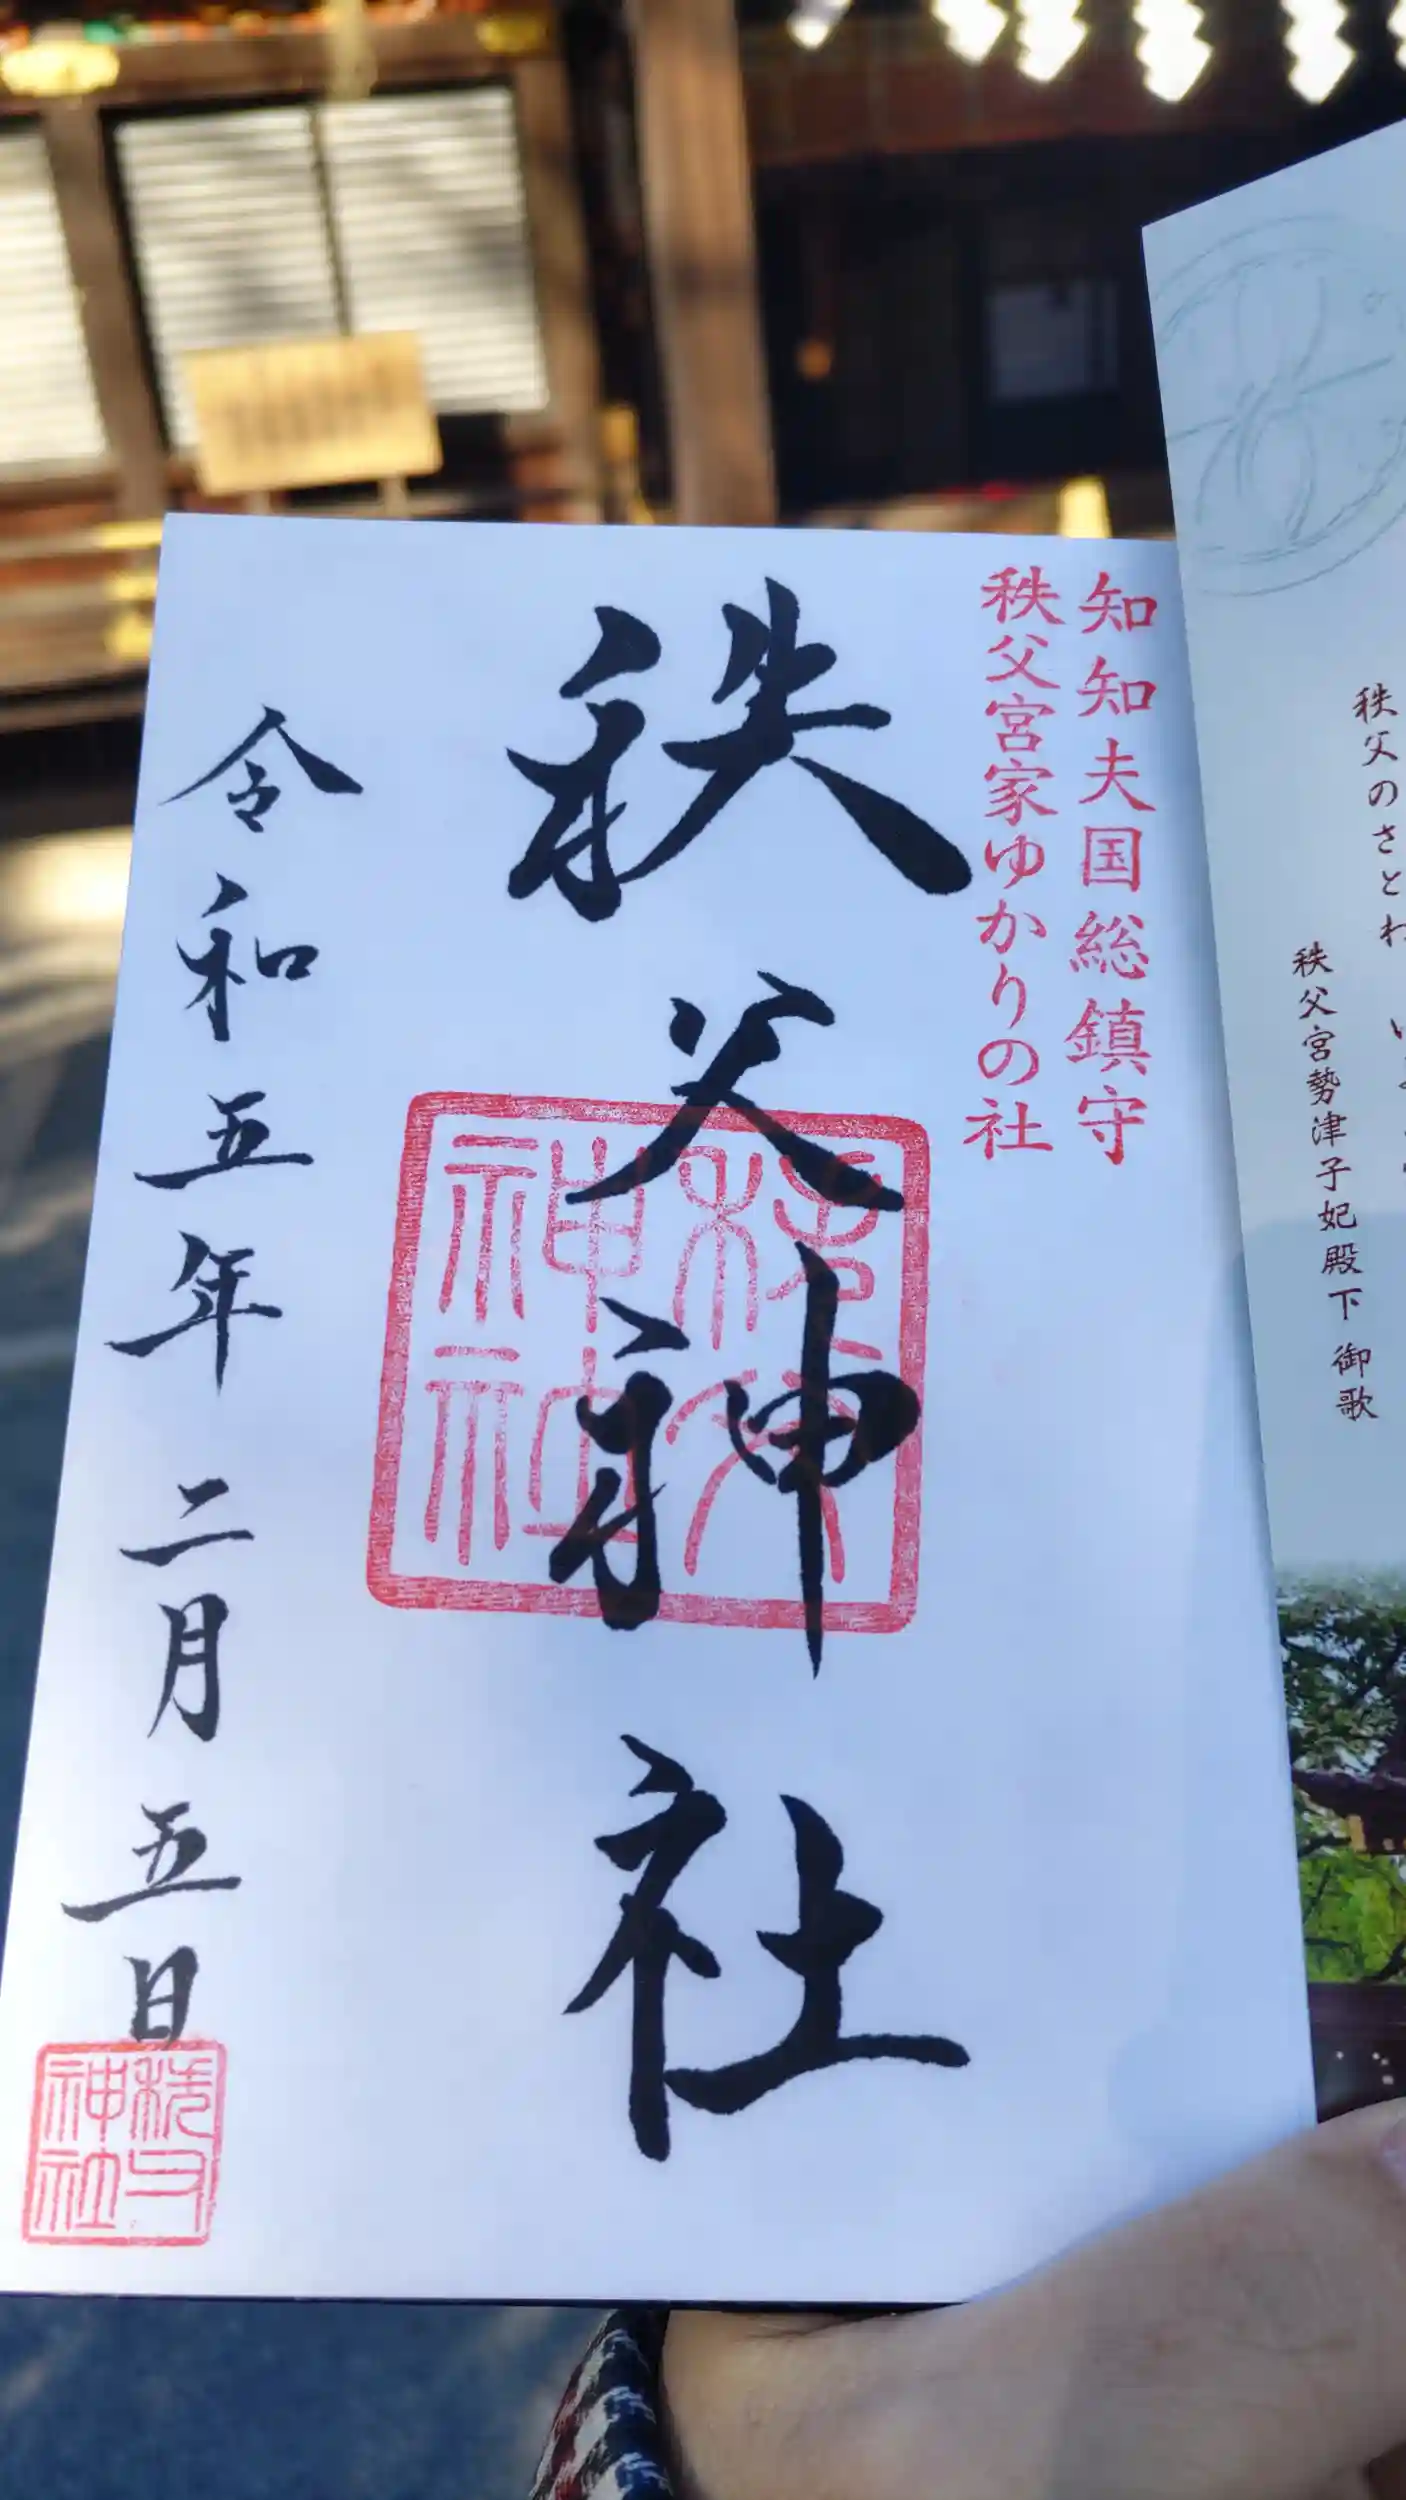 秩父のさとわ
秩父宮勢津子妃殿下 御歌
知知夫国総鎮守
秩父宮家ゆかりの社
秩父神社
秩父神社
令和五年二月五日
秩父神社